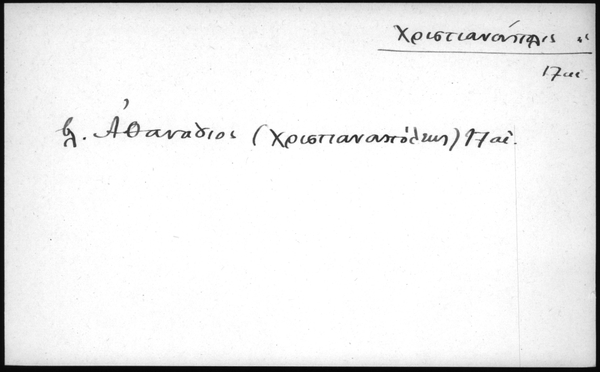 Χριστιανούπολις
17 αἰ.
βλ. Ἀθανάσιος (Χριστιανουπόλεως) 17 αἰ.